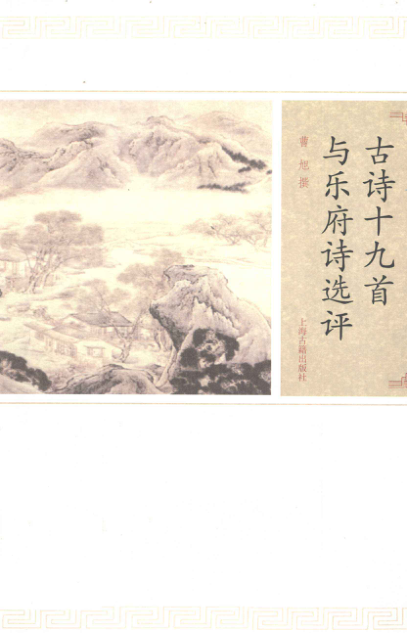 古诗十九首
与乐府诗选评
曹旭 撰
上海古籍出版社